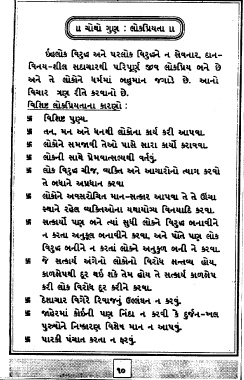 ॥ ચોથો ગુણ : લોકપ્રિયતા ॥
ઇહલોક વિરુદ્ધ અને પરલોક વિરુદ્ધને ન સેવનાર, દાન-
વિનય-શીલ સદાચારથી પરિપૂર્ણ જીવ લોકપ્રિય બને છે
અને તે લોકોને ધર્મમાં બહુમાન જગાડે છે. આનો
વિચાર ત્રણ રીતે કરવાનો છે.
વિશિષ્ટ લોકપ્રિયતાના કારણો :
卐 વિશિષ્ટ પુણ્ય.
卐 તન, મન અને ધનથી લોકોના કાર્ય કરી આપવા.
卐 લોકોને સમજાવી તેઓ પાસે સારા કાર્યો કરાવવા.
卐 લોકની સાથે પ્રેમવાત્સલ્યથી વર્તવું.
卐 લોક વિરુદ્ધ ચીજ, વ્યક્તિ અને આચારોનો ત્યાગ કરવો
તે બધાને અપ્રધાન કરવા
卐 લોકોને અવસરોચિત માન-સત્કાર આપવા તે તે ઊંચા
સ્થાને રહેલ વ્યક્તિઓના યથાયોગ્ય વિનયાદિ કરવા.
卐 સત્કાર્યો પણ બને ત્યાં સુધી લોકને વિરુદ્ધ બનાવીને
ન કરતા અનુકૂલ બનાવીને કરવા. અને પોતે પણ લોક
વિરુદ્ધ બનીને ન કરતાં લોકને અનુકૂળ બની ને કરવા.
卐 જે સત્કાર્ય અંગેનો લોકોનો વિરોધ સન્તવ્ય હોય,
કાળક્ષેપથી દૂર થઈ શકે તેમ હોય તે સત્કાર્ય કાળક્ષેપ
કરી લોક વિરોધ દૂર કરીને કરવા.
卐 દેશાચાર વિગેરે રિવાજનું ઉલ્લંઘન ન કરવું.
卐 જાહેરમાં કોઈની પણ નિંદા ન કરવી કે દુર્જન-ખલ
પુરુષોને નિષ્કારણ વિશેષ માન ન આપવું.
卐 પારકી પંચાત કરતા ન ફરવું.
૧૦